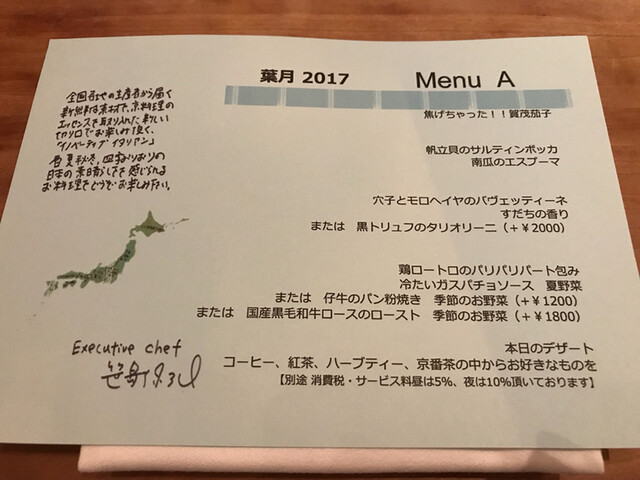 葉月 2017 Menu A
焦げちゃった！！賀茂茄子
帆立貝のサルティンボッカ
南瓜のエスプーマ
穴子とモロヘイヤのバヴェッティーネ
すだちの香り
または 黒トリュフのタリオリーニ（+￥2000）
鶏ロートロのパリパリパート包み
冷たいガスパチョソース 夏野菜
または 仔牛のパン粉焼き 季節のお野菜（+￥1200）
または 国産黒毛和牛ロースのロースト 季節のお野菜（+￥1800）
本日のデザート
コーヒー、紅茶、ハーブティー、京番茶の中からお好きなものを
【別途 消費税・サービス料昼は5%、夜は10%頂いております】
全国各地の生産者から届く
新鮮な素材で、京料理の
エッセンスを取り入れた新しい
切り口でお楽しみ頂く、
「イノベーティブ イタリアン」
春夏秋冬、四季おりおりの
日本の素晴らしさを感じられる
お料理をどうぞお楽しみ下さい。
Executive chef